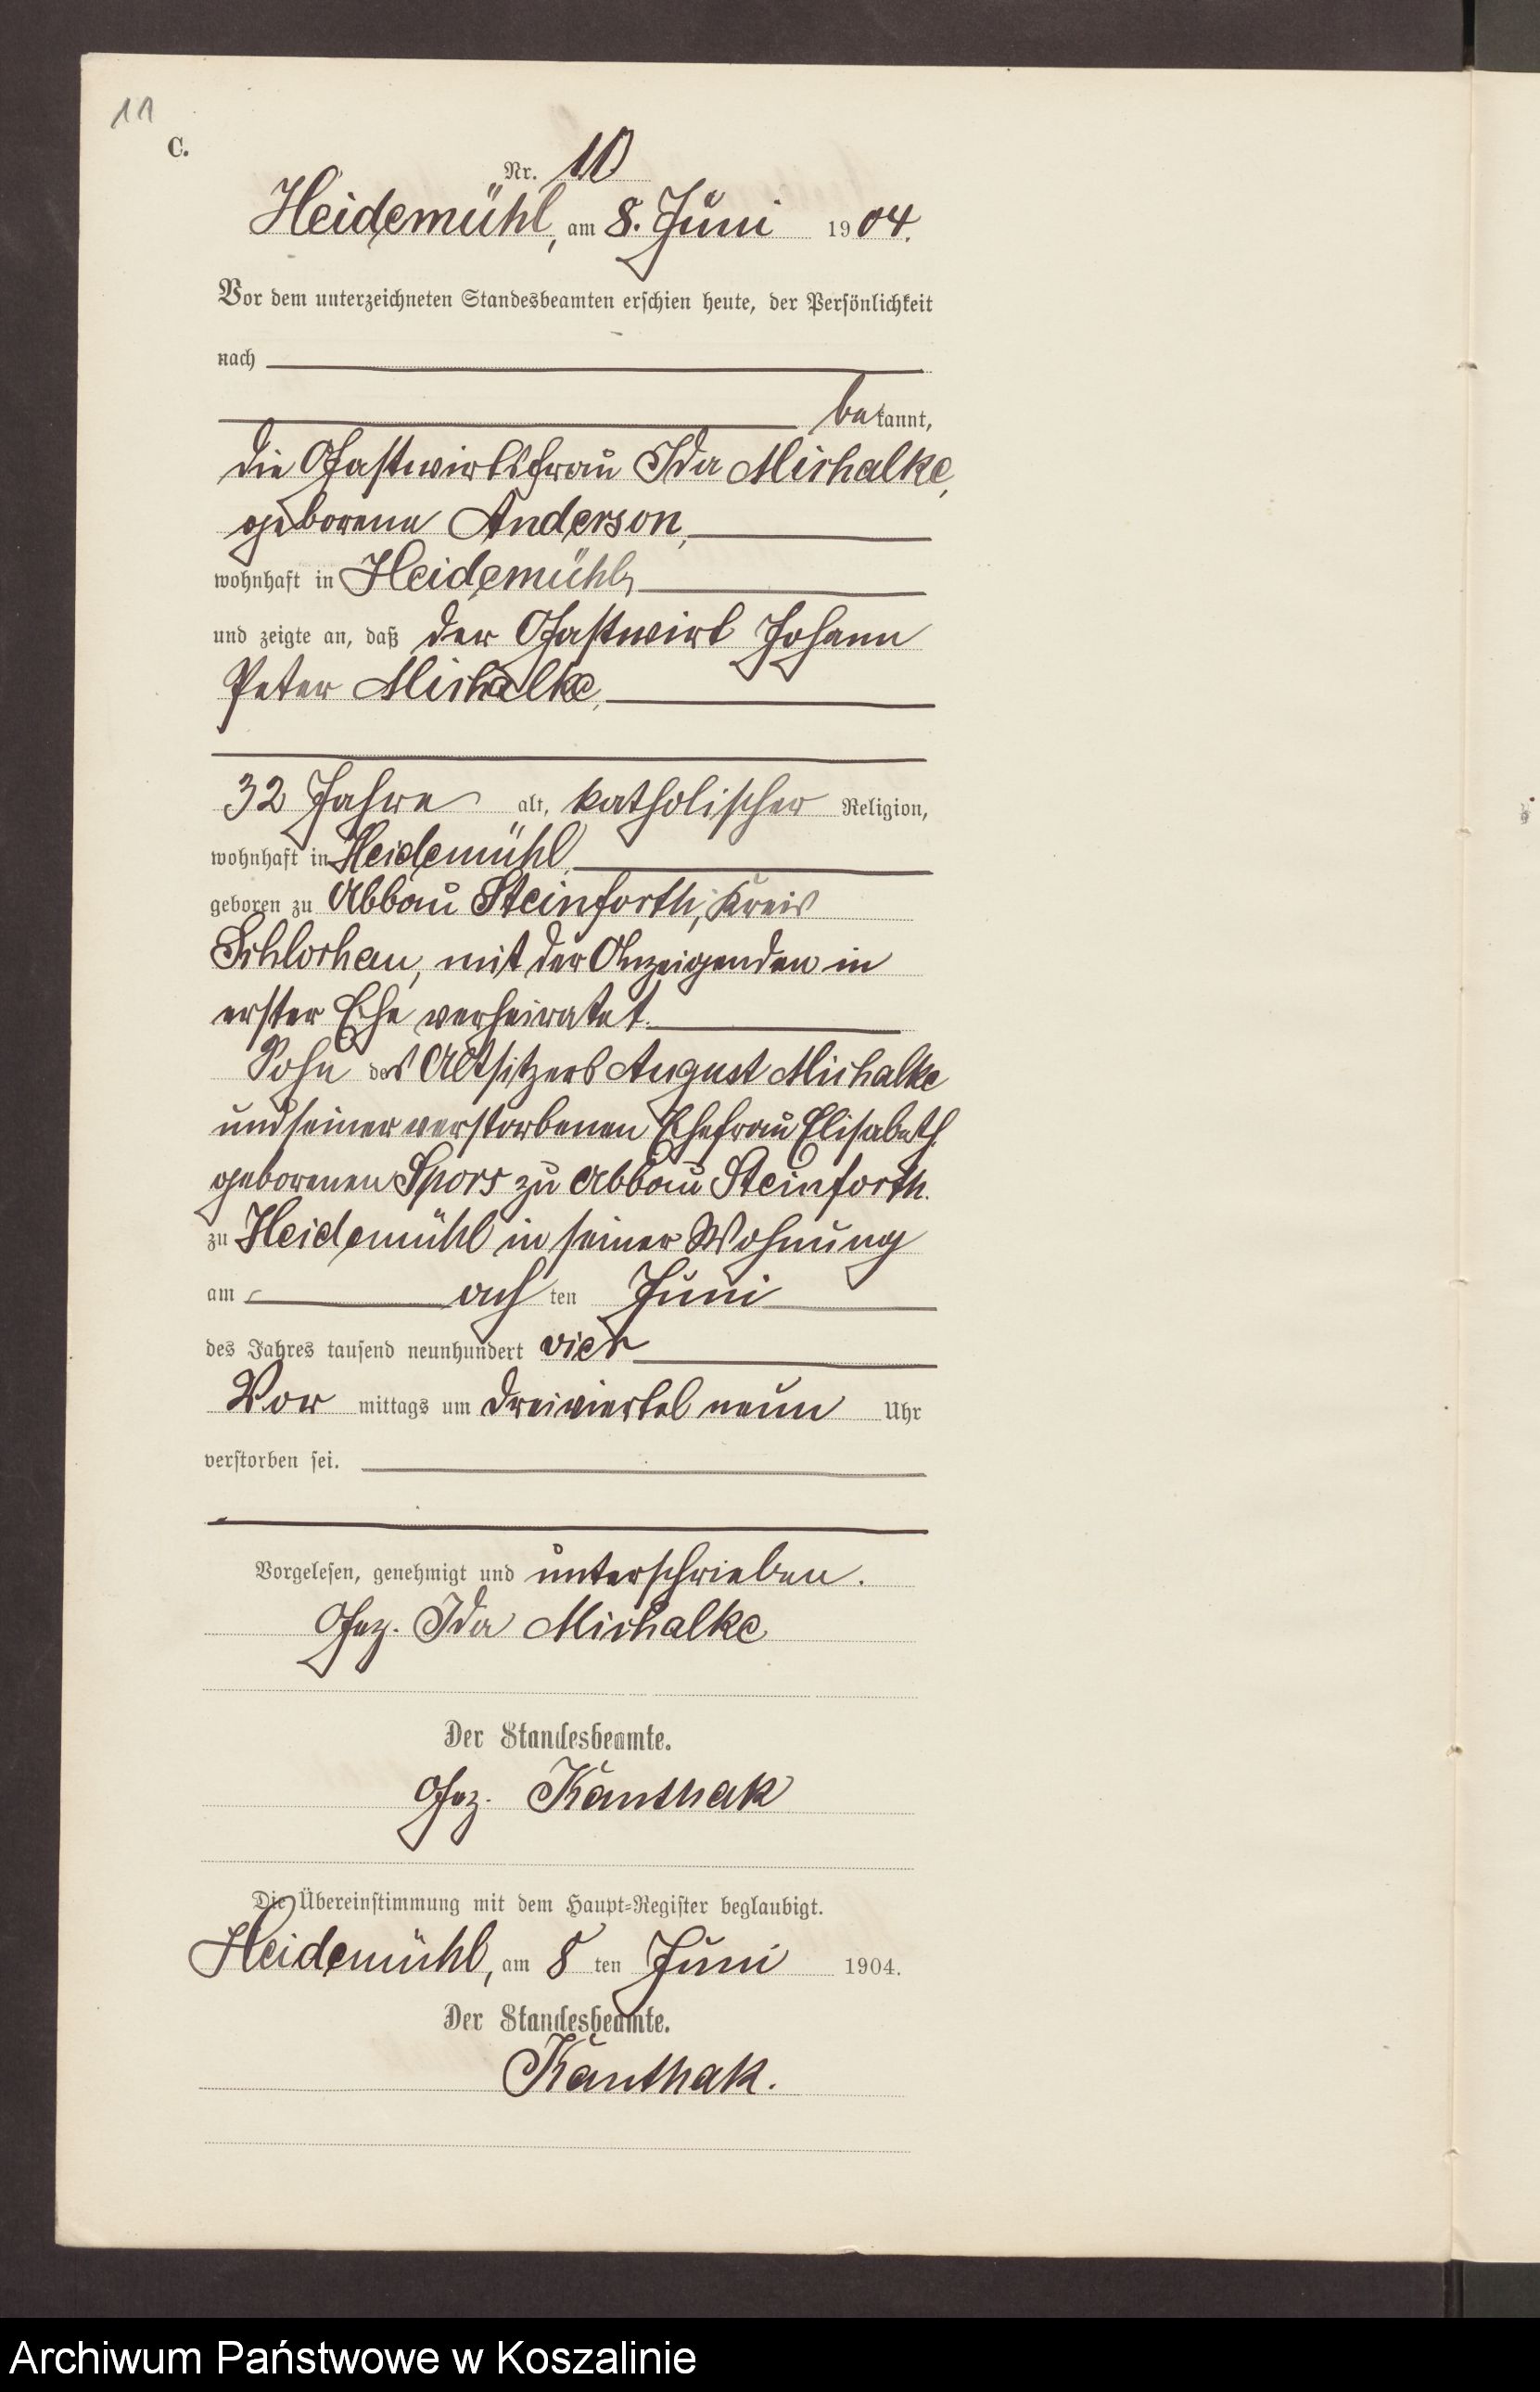 11
C.
Nr. 10
Heidemühl, am 8. Juni 1904.
Vor dem unterzeichneten Standesbeamten erschien heute, der Persönlichkeit
nach
bekannt,
die Gastwirtsfrau Ida Mischalke,
geborene Anderson,
wohnhaft in Heidemühl,
und zeigte an, daß der Gastwirt Johann
Peter Mischalke,
32 Jahre alt, katholischer Religion,
wohnhaft in Heidemühl,
geboren zu Abbau Steinforth, Kreis
Schlochau, mit der Anzeigenden in
erster Ehe verheiratet.
Sohn des Altsitzers August Mischalke
und seiner verstorbenen Ehefrau Elisabeth
geborenen Spors zu Abbau Steinforth.
zu Heidemühl in seiner Wohnung
am achten Juni
des Jahres tausend neunhundert vier
Vormittags um dreiviertel neun Uhr
verstorben sei.
Vorgelesen, genehmigt und unterschrieben.
Gez. Ida Mischalke
Der Standesbeamte.
Gez. Kanthak
Die Übereinstimmung mit dem Haupt-Register beglaubigt.
Heidemühl, am 8 ten Juni 1904.
Der Standesbeamte.
Kanthak.
Archiwum Państwowe w Koszalinie